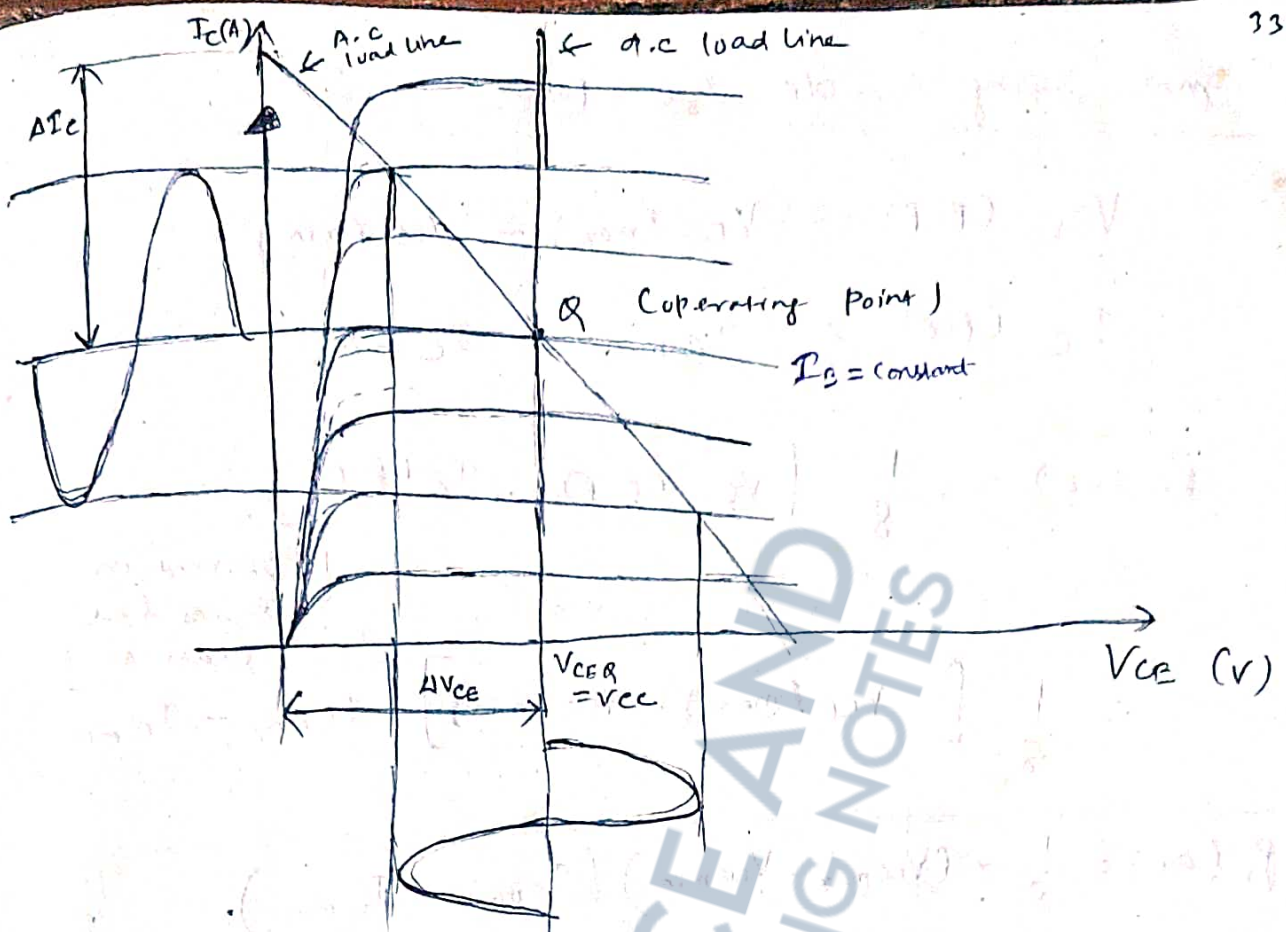 33
Ic(A)
A.C
load line
d.c load line
ΔIc
Q (operating point)
IB = constant
ΔVCE
VCEQ
= VCC
VCE (V)
CE AND
NG NOTES